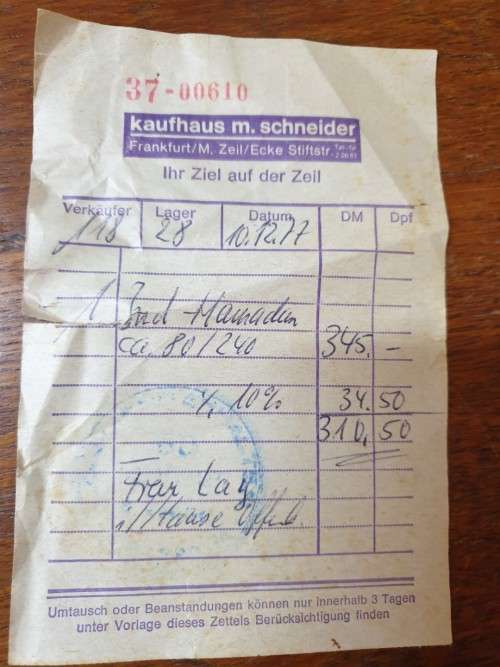 37-00610
kaufhaus m. schneider
Frankfurt/M. Zeil/Ecke Stiftstr.
Ihr Ziel auf der Zeil
Verkäufer Lager Datum DM Dpf
118 28 10.12.77
1 Ind Hamadan
ca. 80/240 345.-
10% 34.50
310,50
Frau Lay
Umtausch oder Beanstandungen können nur innerhalb 3 Tagen
unter Vorlage dieses Zettels Berücksichtigung finden